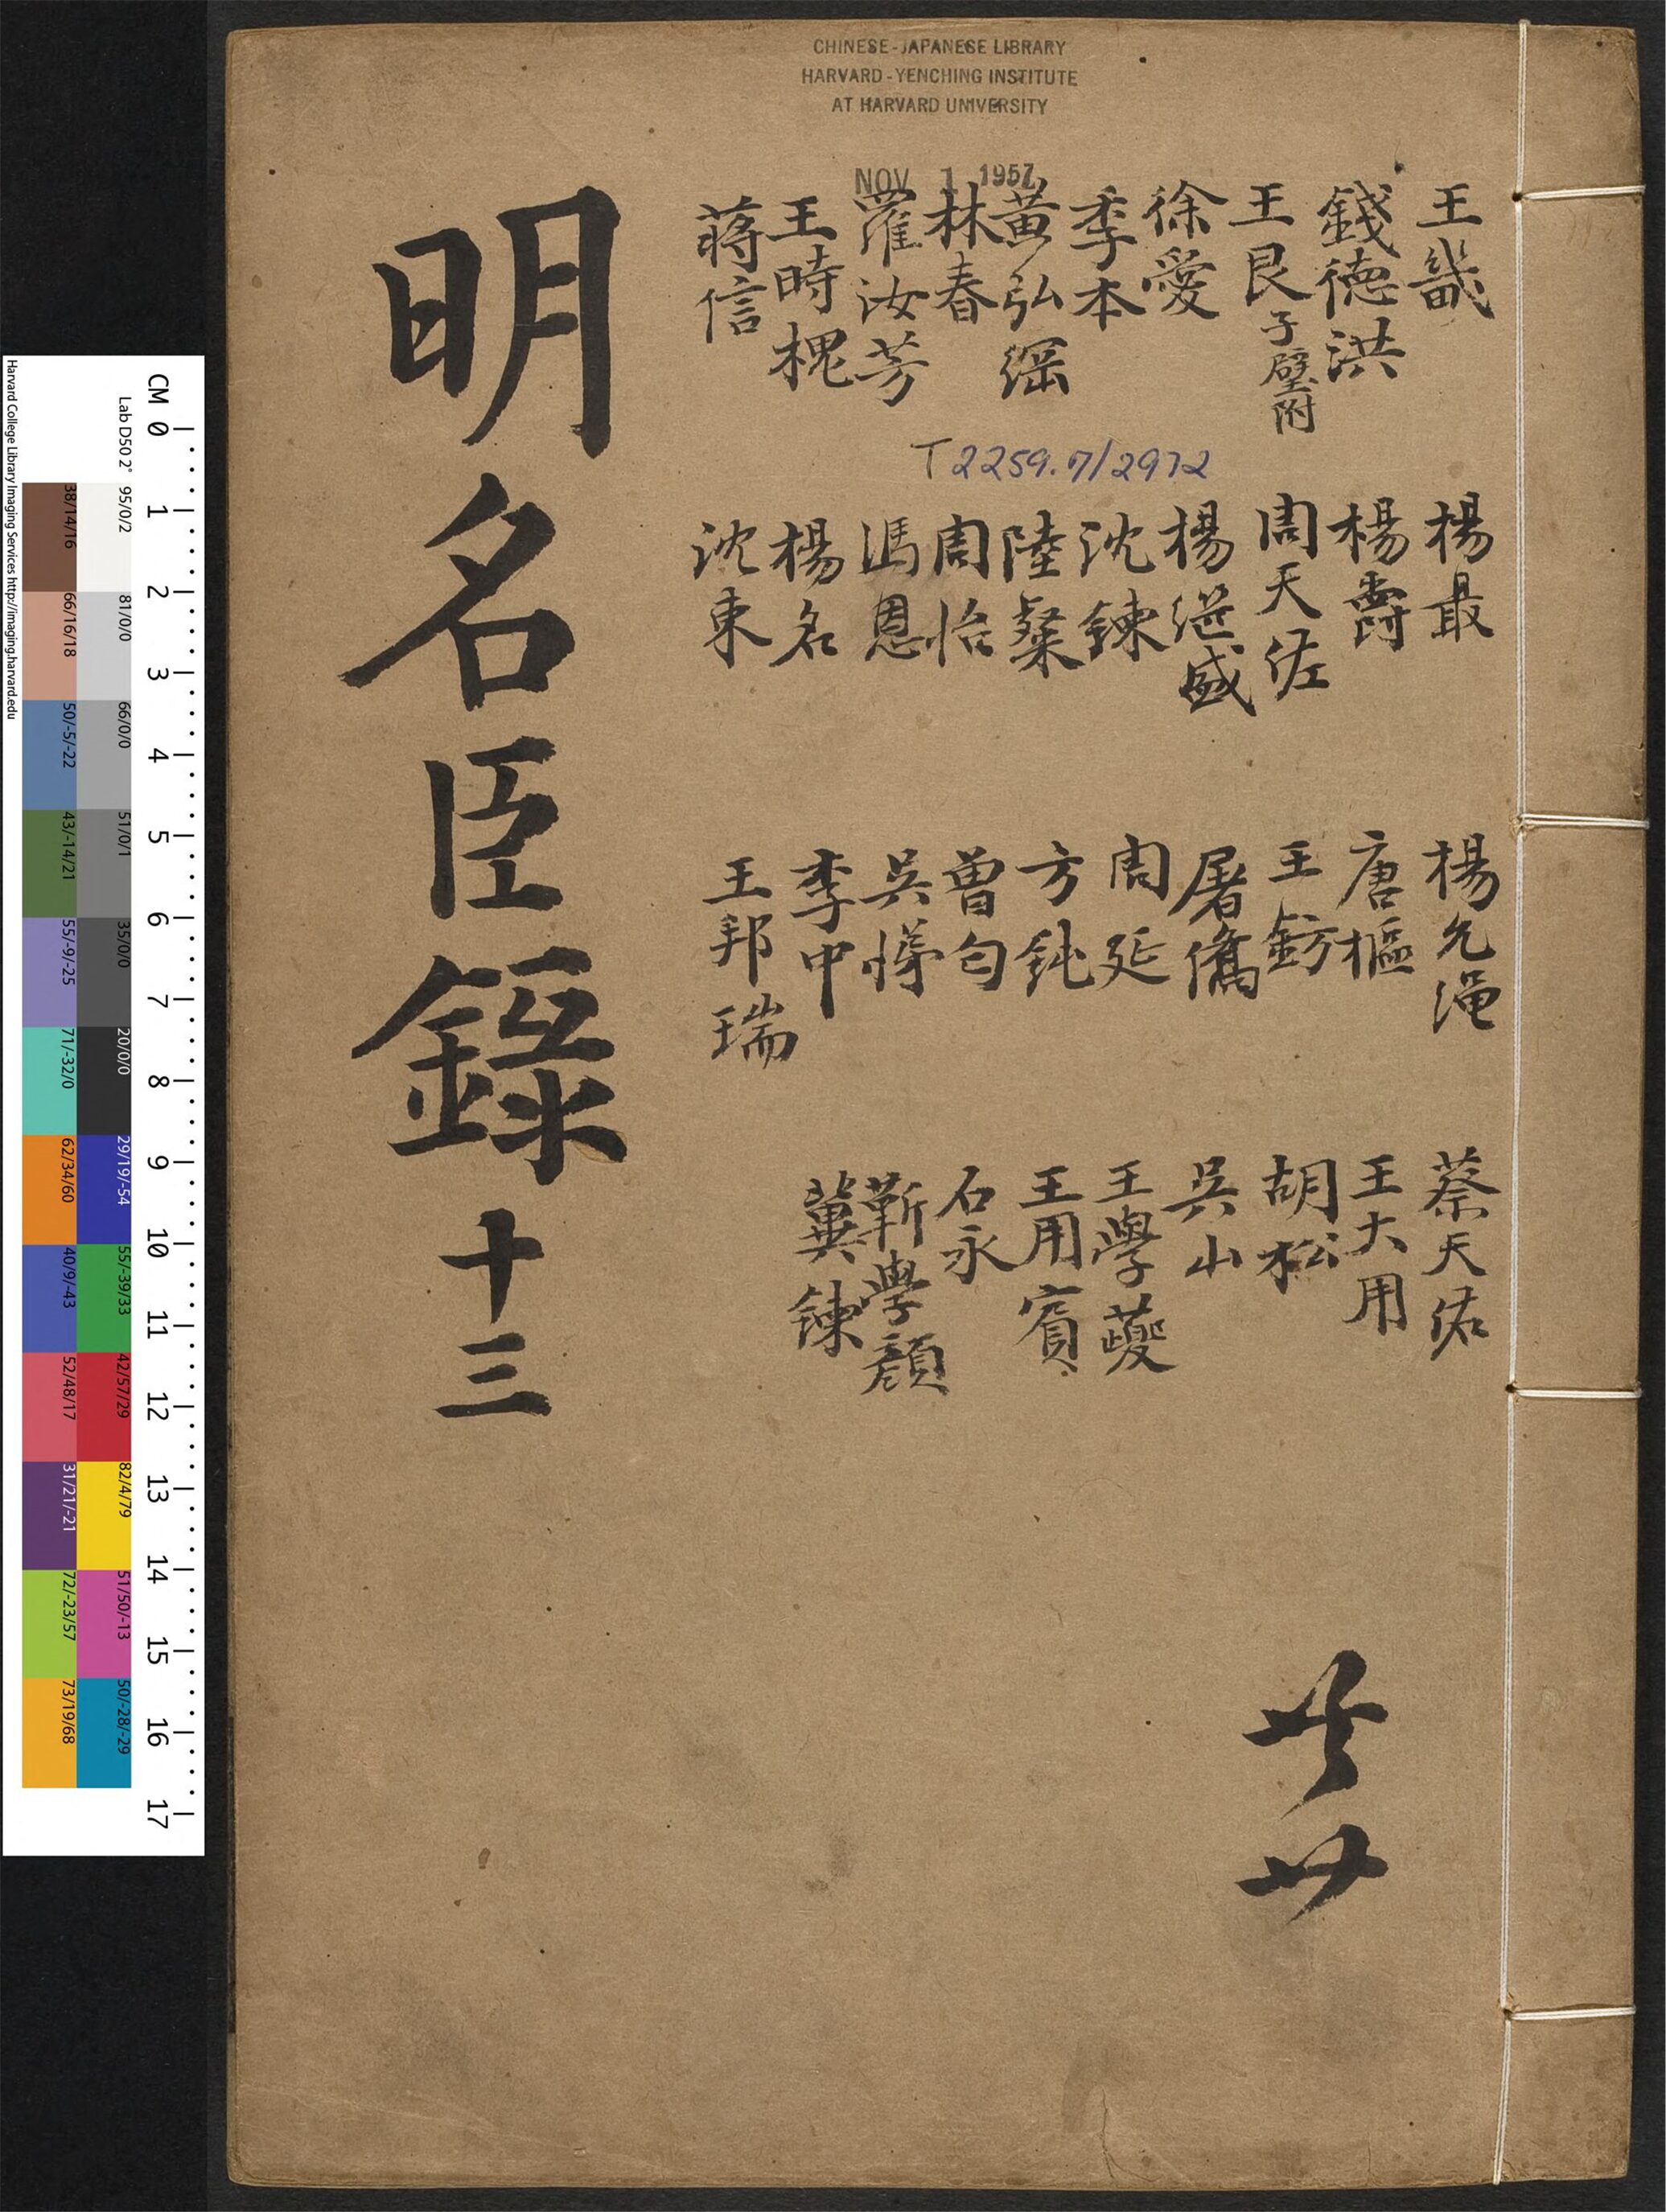 CHINESE-JAPANESE LIBRARY
HARVARD-YENCHING INSTITUTE
AT HARVARD UNIVERSITY
NOV 1 1957
王畿
錢德洪
王艮子璧附
徐愛
季本
黃弘綱
林春
羅汝芳
王時槐
蔣信
T2259.7/2972
楊最
楊爵
周天佐
楊継盛
沈鍊
陸粲
周怡
馮恩
楊名
沈束
楊允繩
唐樞
王鈁
屠僑
周延
方鈍
曾勻
吳悌
李中
王邦瑞
蔡天佑
王大用
胡松
吳山
王學夔
王用賓
石永
靳學顏
冀鍊
明名臣錄十三
CM 0 1 2 3 4 5 6 7 8 9 10 11 12 13 14 15 16 17
Lab D50 2° 95/0/2 81/0/0 66/0/0 51/0/1 35/0/0 20/0/0 29/19/-54 55/-39/33 42/57/29 82/4/79 51/50/-13 50/-28/-29
38/14/16 66/16/18 50/-5/-22 43/-14/21 55/-9/-25 71/-32/0 62/34/60 40/9/-43 52/48/17 31/21/-21 72/-23/57 73/19/68
Harvard College Library Imaging Services http://imaging.harvard.edu